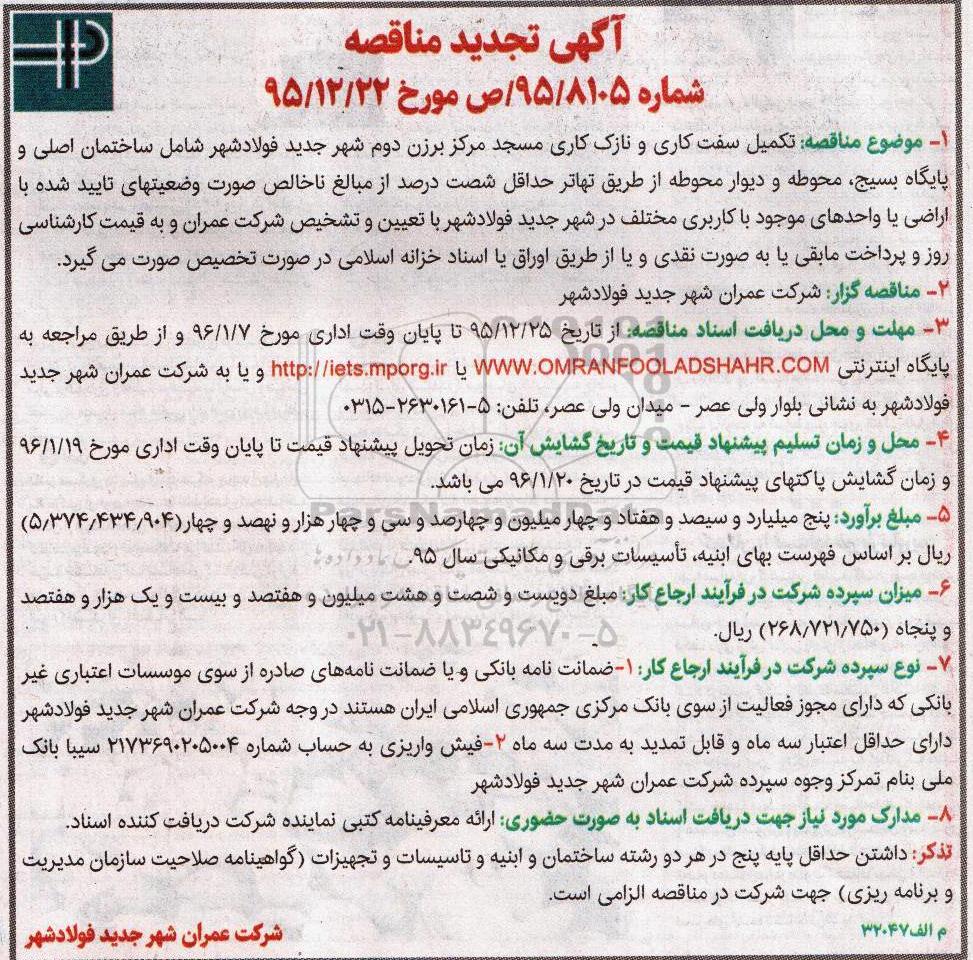 آگهی تجدید مناقصه
شماره ۹۵/۸۱۰۵/ص مورخ ۹۵/۱۲/۲۲
۱- موضوع مناقصه: تکمیل سفت کاری و نازک کاری مسجد مرکز برزن دوم شهر جدید فولادشهر شامل ساختمان اصلی و
پایگاه بسیج، محوطه و دیوار محوطه از طریق تهاتر حداقل شصت درصد از مبالغ ناخالص صورت وضعیتهای تایید شده با
اراضی یا واحدهای موجود با کاربری مختلف در شهر جدید فولادشهر با تعیین و تشخیص شرکت عمران و به قیمت کارشناسی
روز و پرداخت مابقی یا به صورت نقدی و یا از طریق اوراق یا اسناد خزانه اسلامی در صورت تخصیص صورت می گیرد.
۲- مناقصه گزار: شرکت عمران شهر جدید فولادشهر
۳- مهلت و محل دریافت اسناد مناقصه: از تاریخ ۹۵/۱۲/۲۵ تا پایان وقت اداری مورخ ۹۶/۱/۷ و از طریق مراجعه به
پایگاه اینترنتی WWW.OMRANFOOLADSHAHR.COM یا http://iets.mporg.ir و یا به شرکت عمران شهر جدید
فولادشهر به نشانی بلوار ولی عصر - میدان ولی عصر، تلفن: ۵-۲۶۳۰۱۶۱-۰۳۱۵
۴- محل و زمان تسلیم پیشنهاد قیمت و تاریخ گشایش آن: زمان تحویل پیشنهاد قیمت تا پایان وقت اداری مورخ ۹۶/۱/۱۹
و زمان گشایش پاکتهای پیشنهاد قیمت در تاریخ ۹۶/۱/۲۰ می باشد.
ParsNamadData
۵- مبلغ برآورد: پنج میلیارد و سیصد و هفتاد و چهار میلیون و چهارصد و سی و چهار هزار و نهصد و چهار (۵٫۳۷۴٫۴۳۴٫۹۰۴)
ریال بر اساس فهرست بهای ابنیه، تأسیسات برقی و مکانیکی سال ۹۵.
۶- میزان سپرده شرکت در فرآیند ارجاع کار: مبلغ دویست و شصت و هشت میلیون و هفتصد و بیست و یک هزار و هفتصد
و پنجاه (۲۶۸٫۷۲۱٫۷۵۰) ریال.
۰۲۱-۸۸۳۴۹۶۷۰-۵
۷- نوع سپرده شرکت در فرآیند ارجاع کار: ۱-ضمانت نامه بانکی و یا ضمانت نامه‌های صادره از سوی موسسات اعتباری غیر
بانکی که دارای مجوز فعالیت از سوی بانک مرکزی جمهوری اسلامی ایران هستند در وجه شرکت عمران شهر جدید فولادشهر
دارای حداقل اعتبار سه ماه و قابل تمدید به مدت سه ماه ۲-فیش واریزی به حساب شماره ۲۱۷۳۶۹۰۲۰۵۰۰۴ سیبا بانک
ملی بنام تمرکز وجوه سپرده شرکت عمران شهر جدید فولادشهر
۸- مدارک مورد نیاز جهت دریافت اسناد به صورت حضوری: ارائه معرفینامه کتبی نماینده شرکت دریافت کننده اسناد.
تذکر: داشتن حداقل پایه پنج در هر دو رشته ساختمان و ابنیه و تاسیسات و تجهیزات (گواهینامه صلاحیت سازمان مدیریت
و برنامه ریزی) جهت شرکت در مناقصه الزامی است.
م الف ۳۲۰۴۷
شرکت عمران شهر جدید فولادشهر